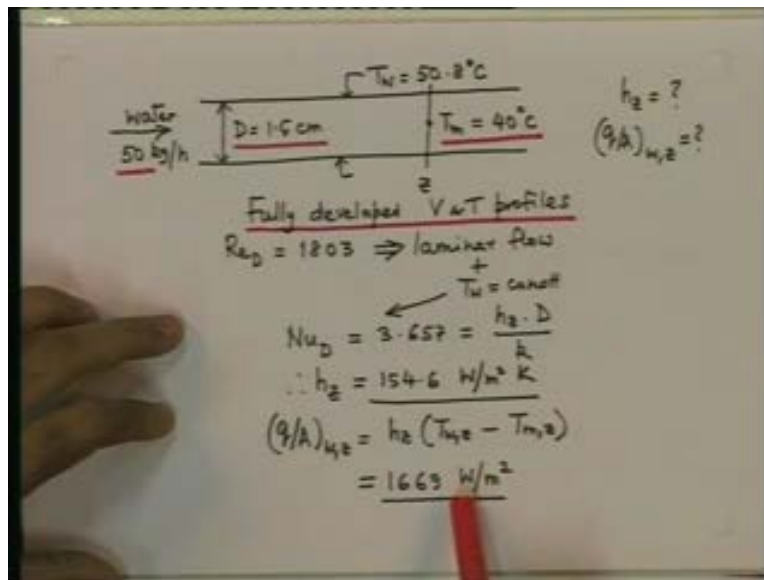 T_w = 50.8°C
water
50 kg/h
D = 1.5 cm
T_m = 40°C
h_z = ?
(q/A)_{w,z} = ?
z
Fully developed V & T profiles
Re_D = 1803 ⇒ laminar flow
+
T_w = const
Nu_D = 3.657 = h_z . D / k
∴ h_z = 154.6 W/m² K
(q/A)_{w,z} = h_z (T_{w,z} – T_{m,z})
= 1669 W/m²